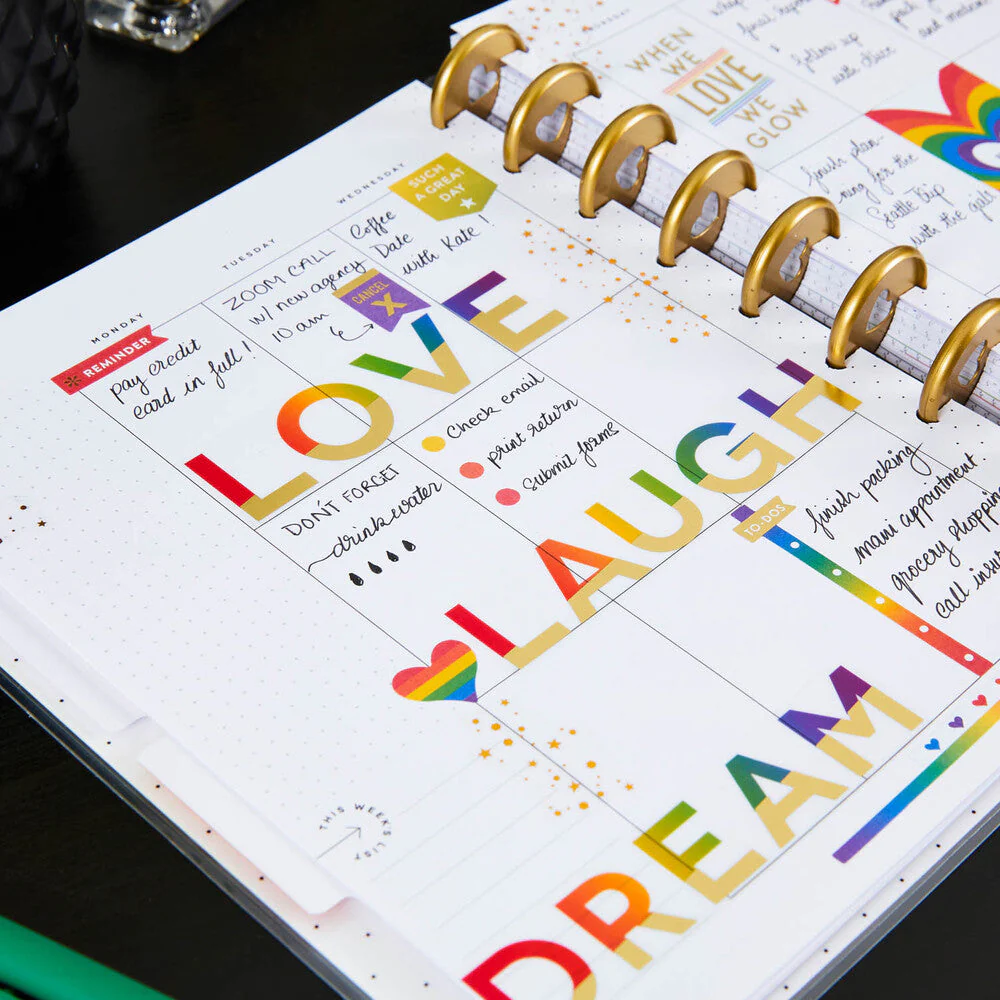 MONDAY
REMINDER
pay credit
card in full!
TUESDAY
ZOOM CALL
w/ new agency
10 am
CANCEL
X
WEDNESDAY
SUCH
A GREAT
DAY
Coffee
Date
with Kate!
LOVE
DON'T FORGET
drink water
Check email
print return
Submit forms
LAUGH
TO-DOS
finish packing
mani appointment
grocery shopping
call
DREAM
THIS WEEK'S LIST
WHEN
WE
LOVE
WE
GLOW
follow up
with
finish plan-
ning for the
Seattle Trip
with the gals